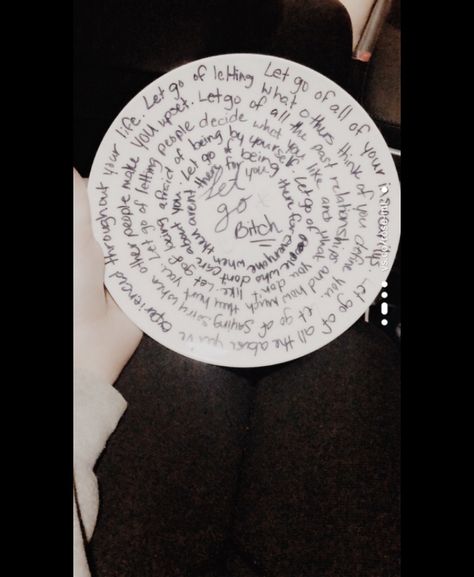 Let go of all of your
Let go of all the abuse you've experienced throughout your life. Let go of letting
what others think of you define you. Let go of saying sorry when other people make you upset. Let go of all the past relationships and how much they hurt you. Let go of letting people decide what you like and what you don't like. Let go of being afraid of being by yourself. Let go of people who dont care about you. Let go of being there for everyone when they arent there for you
Let
go
Bitch